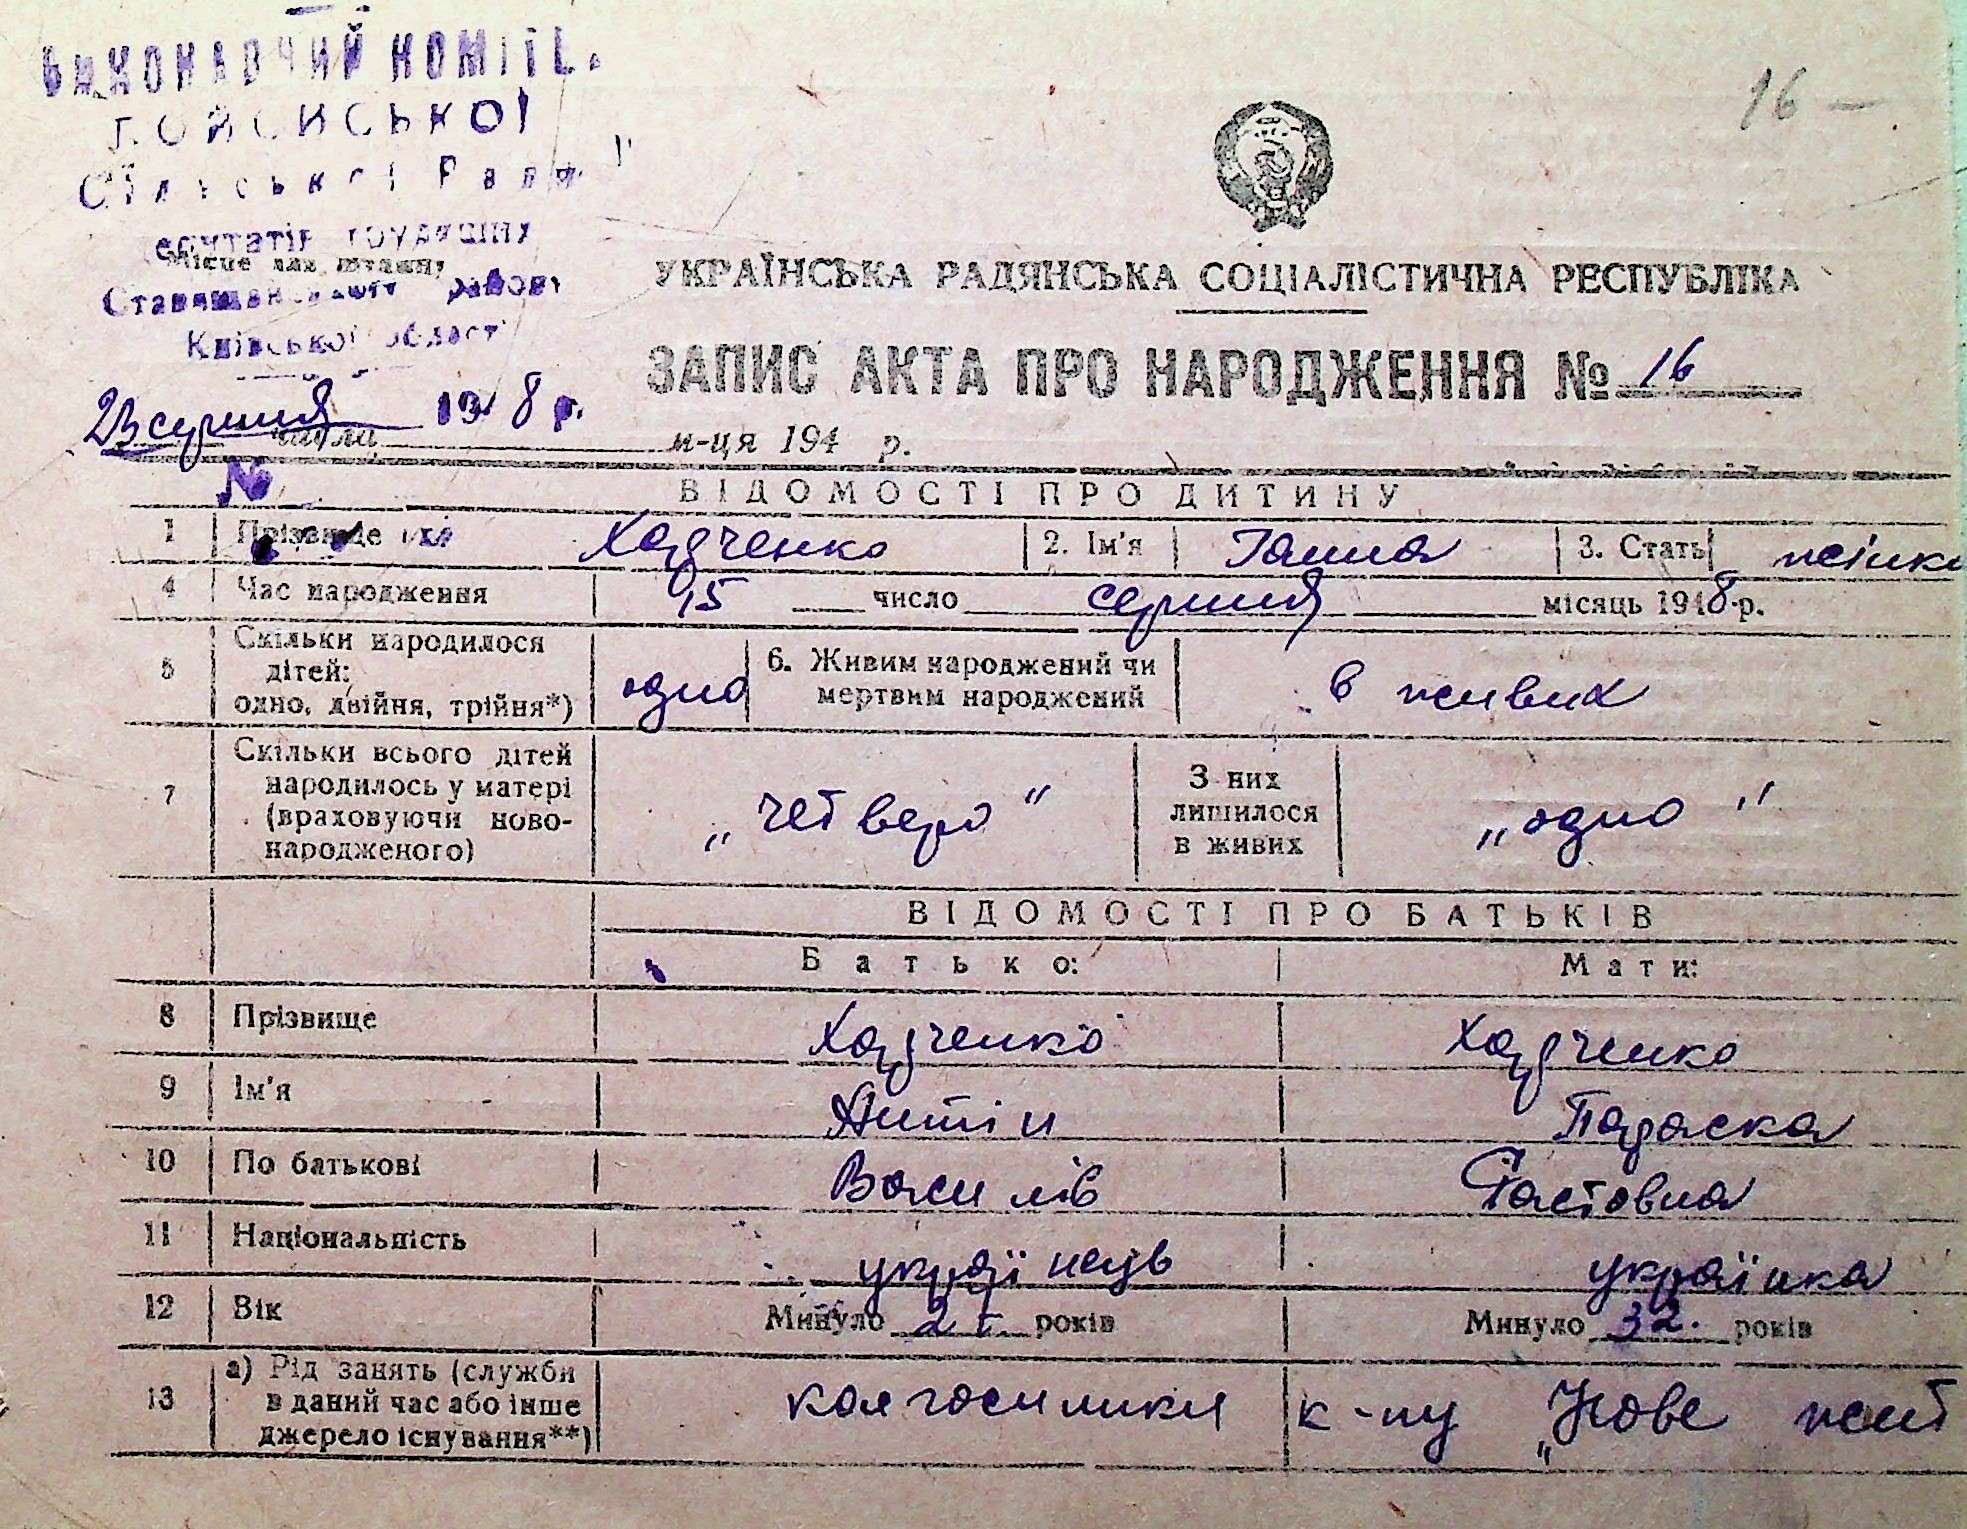 16 —
ВИКОНАВЧИЙ КОМІТЕ
Сільської Ради
депутатів трудящих
Місце для штампу
Ставищанського району
Київської області
23 серпня 1948 р.
УКРАЇНСЬКА РАДЯНСЬКА СОЦІАЛІСТИЧНА РЕСПУБЛІКА
ЗАПИС АКТА ПРО НАРОДЖЕННЯ № 16
числа м-ця 194 р.
№
ВІДОМОСТІ ПРО ДИТИНУ
1 Прізвище Харченко 2. Ім'я Ганна 3. Стать жінк
4 Час народження 15 число серпня місяць 1948 р.
5 Скільки народилося
дітей:
одно, двійня, трійня*) одно
6. Живим народжений чи
мертвим народжений в живих
7 Скільки всього дітей
народилось у матері
(враховуючи ново-
народженого) „четверо"
З них
лишилося
в живих „одно"
ВІДОМОСТІ ПРО БАТЬКІВ
Батько: Мати:
8 Прізвище Харченко Харченко
9 Ім'я Антін Параска
10 По батькові Василів Фастовна
11 Національність українець українка
12 Вік Минуло років Минуло 32. років
13 а) Рід занять (служби
в даний час або інше
джерело існування**) колгоспники к-пу „Нове жит